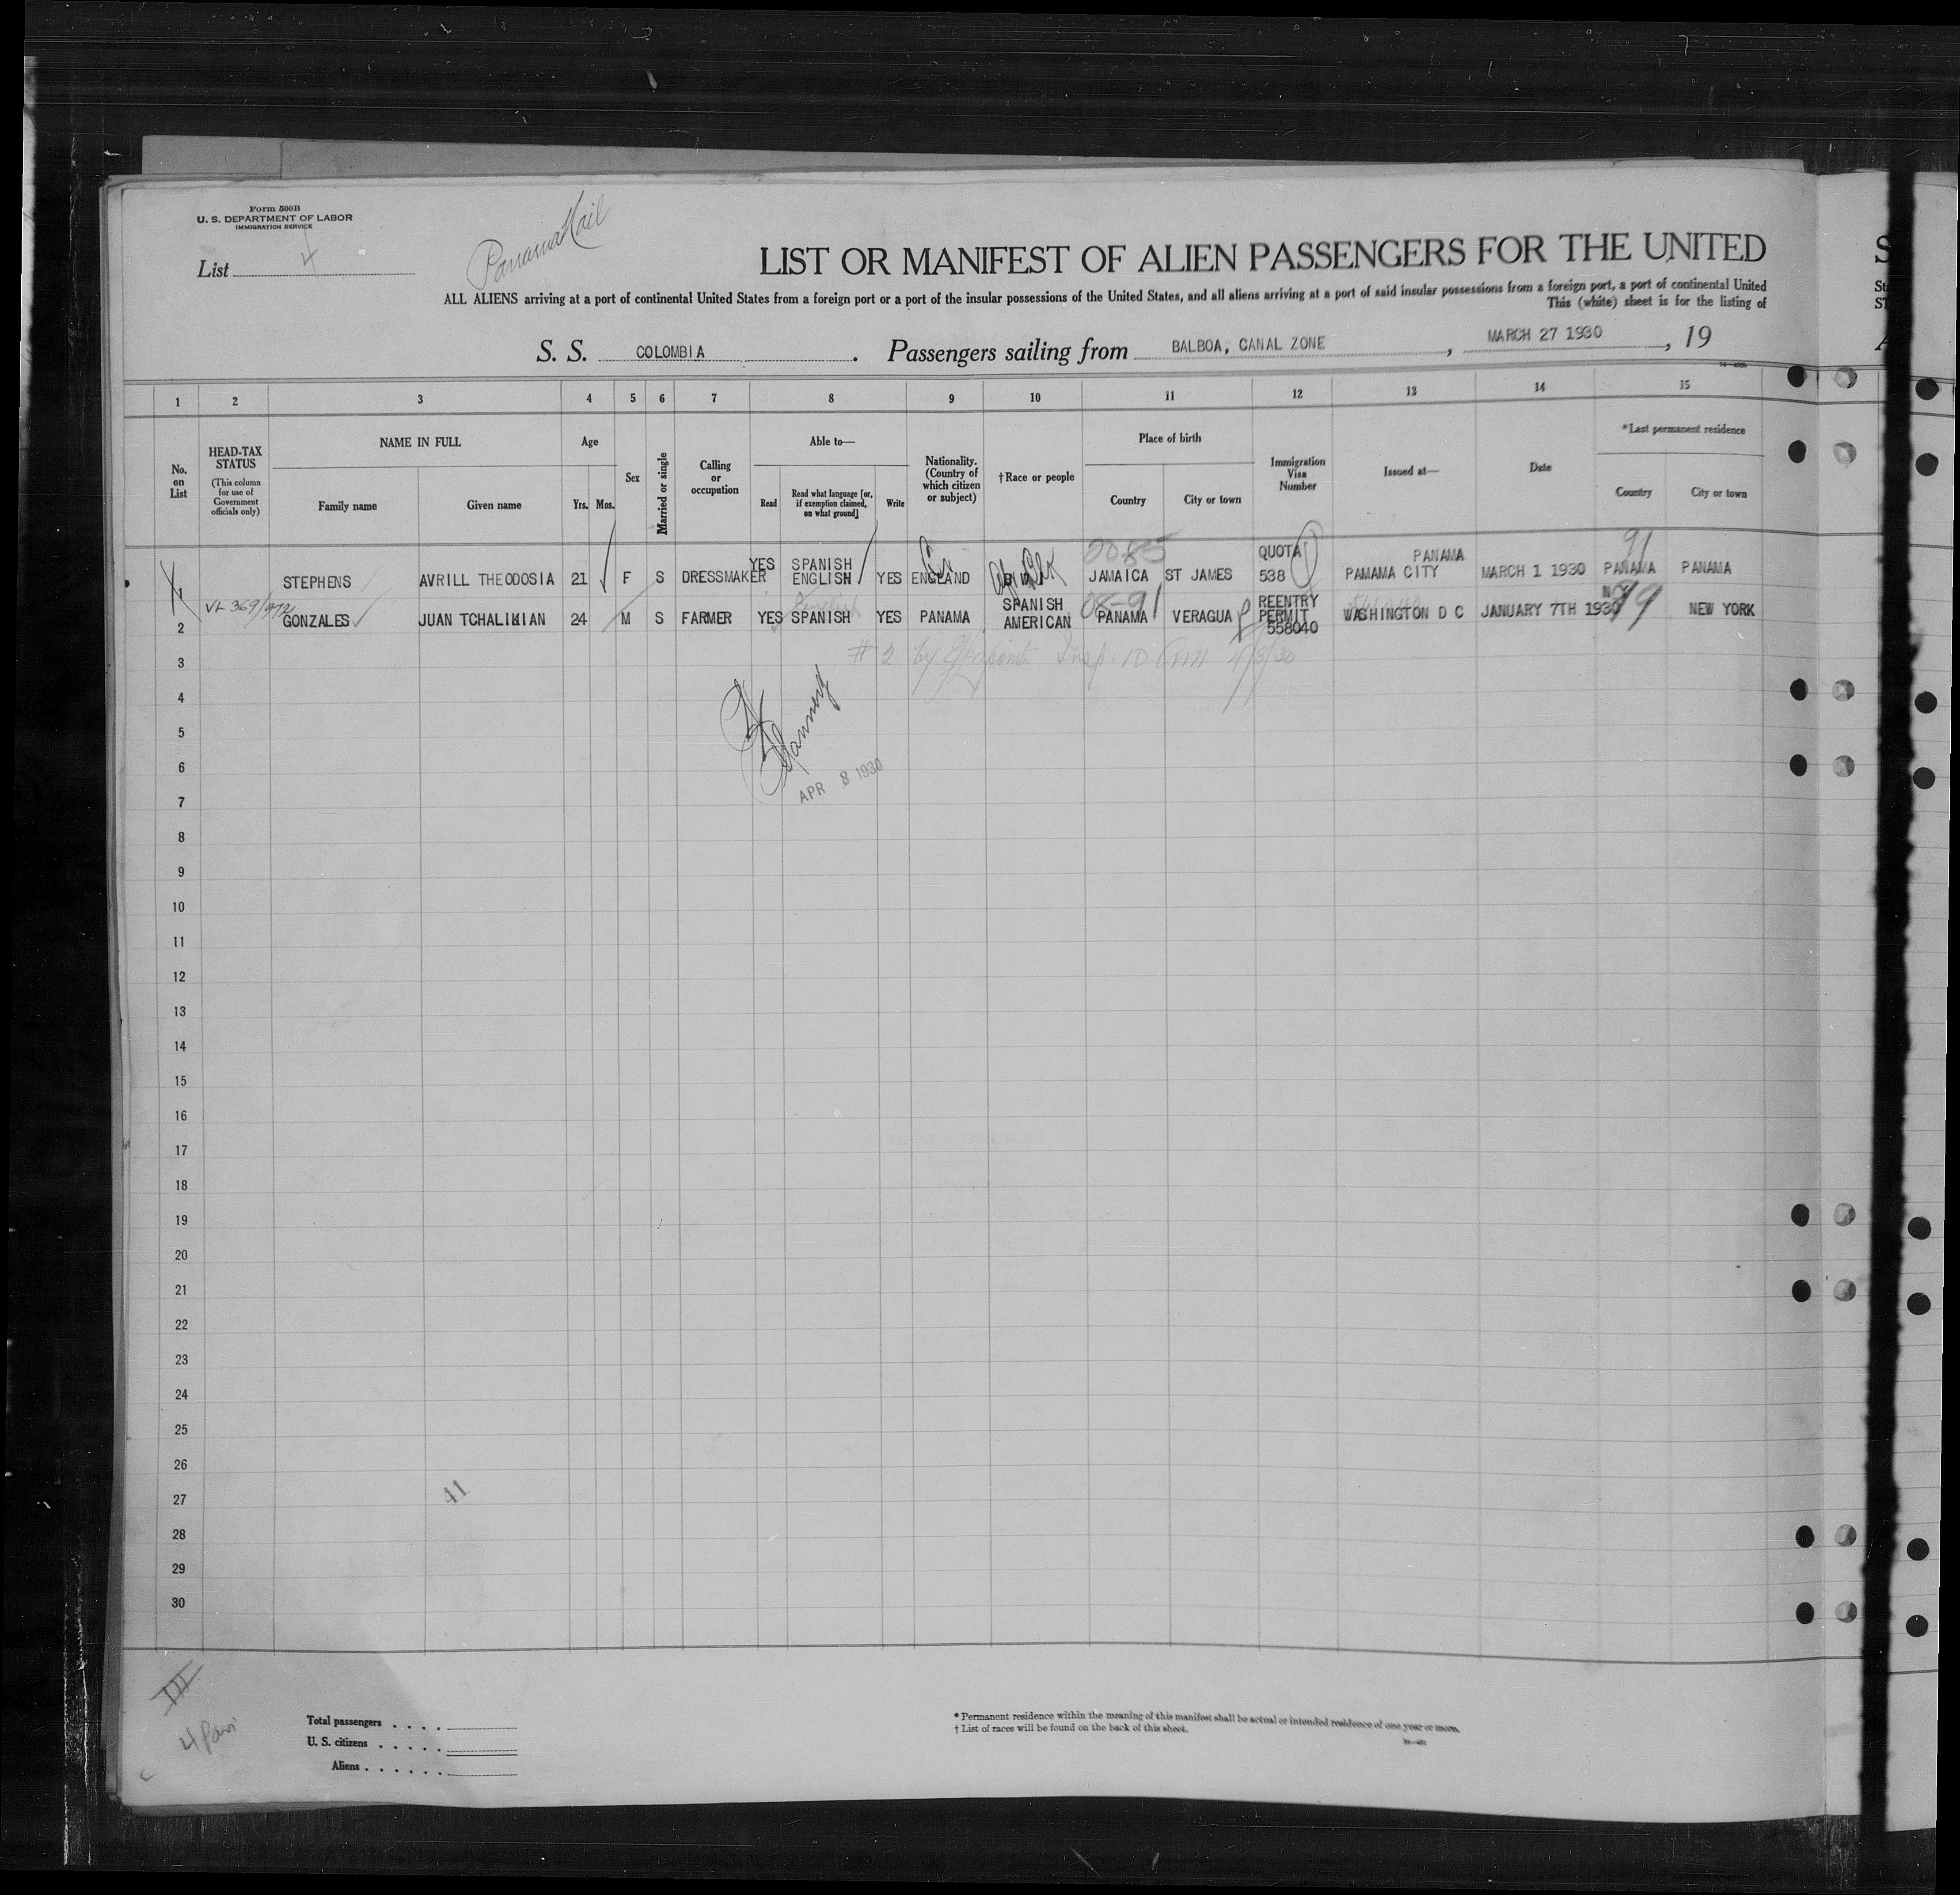 Form 500B
U. S. DEPARTMENT OF LABOR
IMMIGRATION SERVICE
List 4
Panama Mail
LIST OR MANIFEST OF ALIEN PASSENGERS FOR THE UNITED
ALL ALIENS arriving at a port of continental United States from a foreign port or a port of the insular possessions of the United States, and all aliens arriving at a port of said insular possessions from a foreign port, a port of continental United
This (white) sheet is for the listing of
S. S. COLOMBIA . Passengers sailing from BALBOA, CANAL ZONE , MARCH 27 1930 , 19
1 2 3 4 5 6 7 8 9 10 11 12 13 14 15
No. on List
HEAD-TAX STATUS
(This column for use of Government officials only)
NAME IN FULL
Family name Given name
Age
Yrs. Mos.
Sex
Married or single
Calling or occupation
Able to—
Read Read what language [or, if exemption claimed, on what ground] Write
Nationality. (Country of which citizen or subject)
†Race or people
Place of birth
Country City or town
Immigration Visa Number
Issued at—
Date
*Last permanent residence
Country City or town
1 STEPHENS AVRILL THEODOSIA 21 F S DRESSMAKER YES SPANISH ENGLISH YES ENGLAND JAMAICA ST JAMES QUOTA 538 PAMAMA CITY PANAMA MARCH 1 1930 PANAMA PANAMA
91
2 GONZALES JUAN TCHALIKIAN 24 M S FARMER YES SPANISH YES PANAMA SPANISH AMERICAN PANAMA VERAGUA REENTRY PERMIT 558040 WASHINGTON D C JANUARY 7TH 1930 99 NEW YORK
08-91
3
4
5
6
APR 8 1930
7
8
9
10
11
12
13
14
15
16
17
18
19
20
21
22
23
24
25
26
27
41
28
29
30
III
Total passengers
U. S. citizens
Aliens
* Permanent residence within the meaning of this manifest shall be actual or intended residence of one year or more.
† List of races will be found on the back of this sheet.